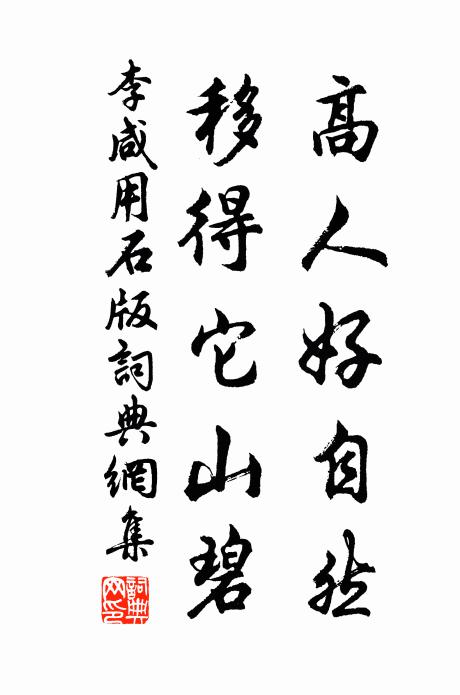 高人好自然
移得它山碧
李咸用石版詞典網集
詞典網印